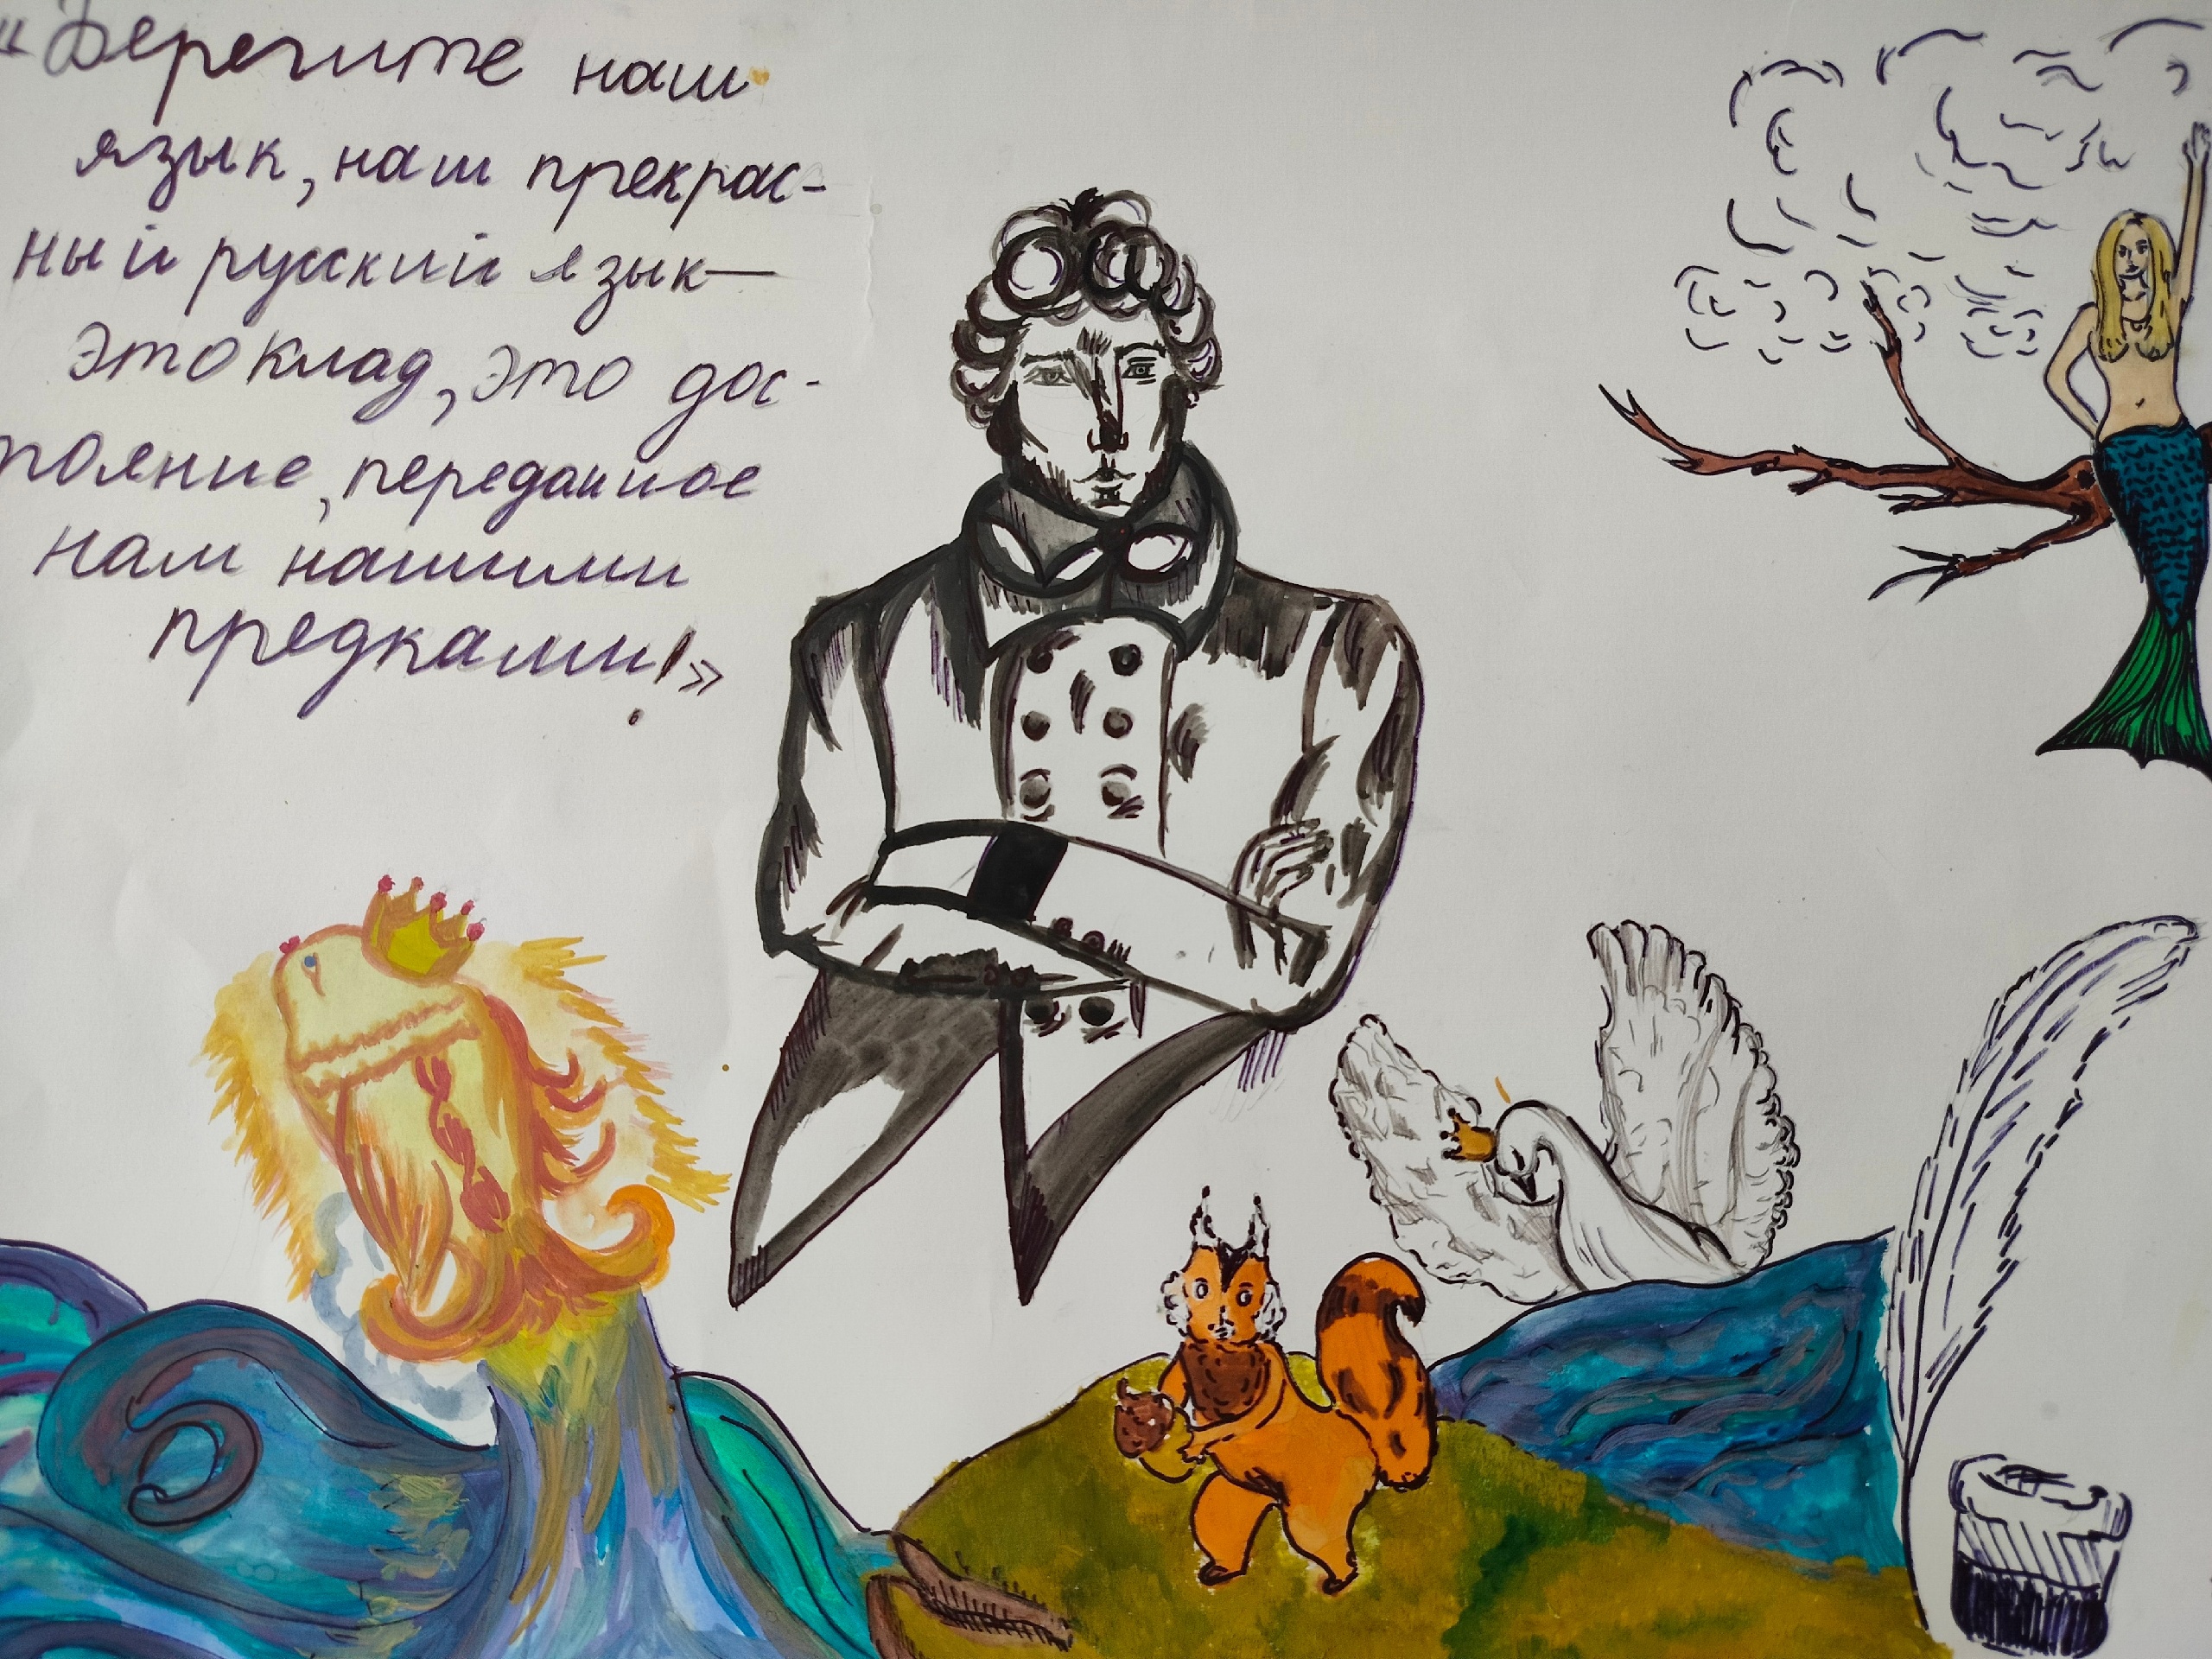 «Берегите наш
язык, наш прекрас-
ный русский язык—
это клад, это дос-
тояние, переданное
нам нашими
предками!»